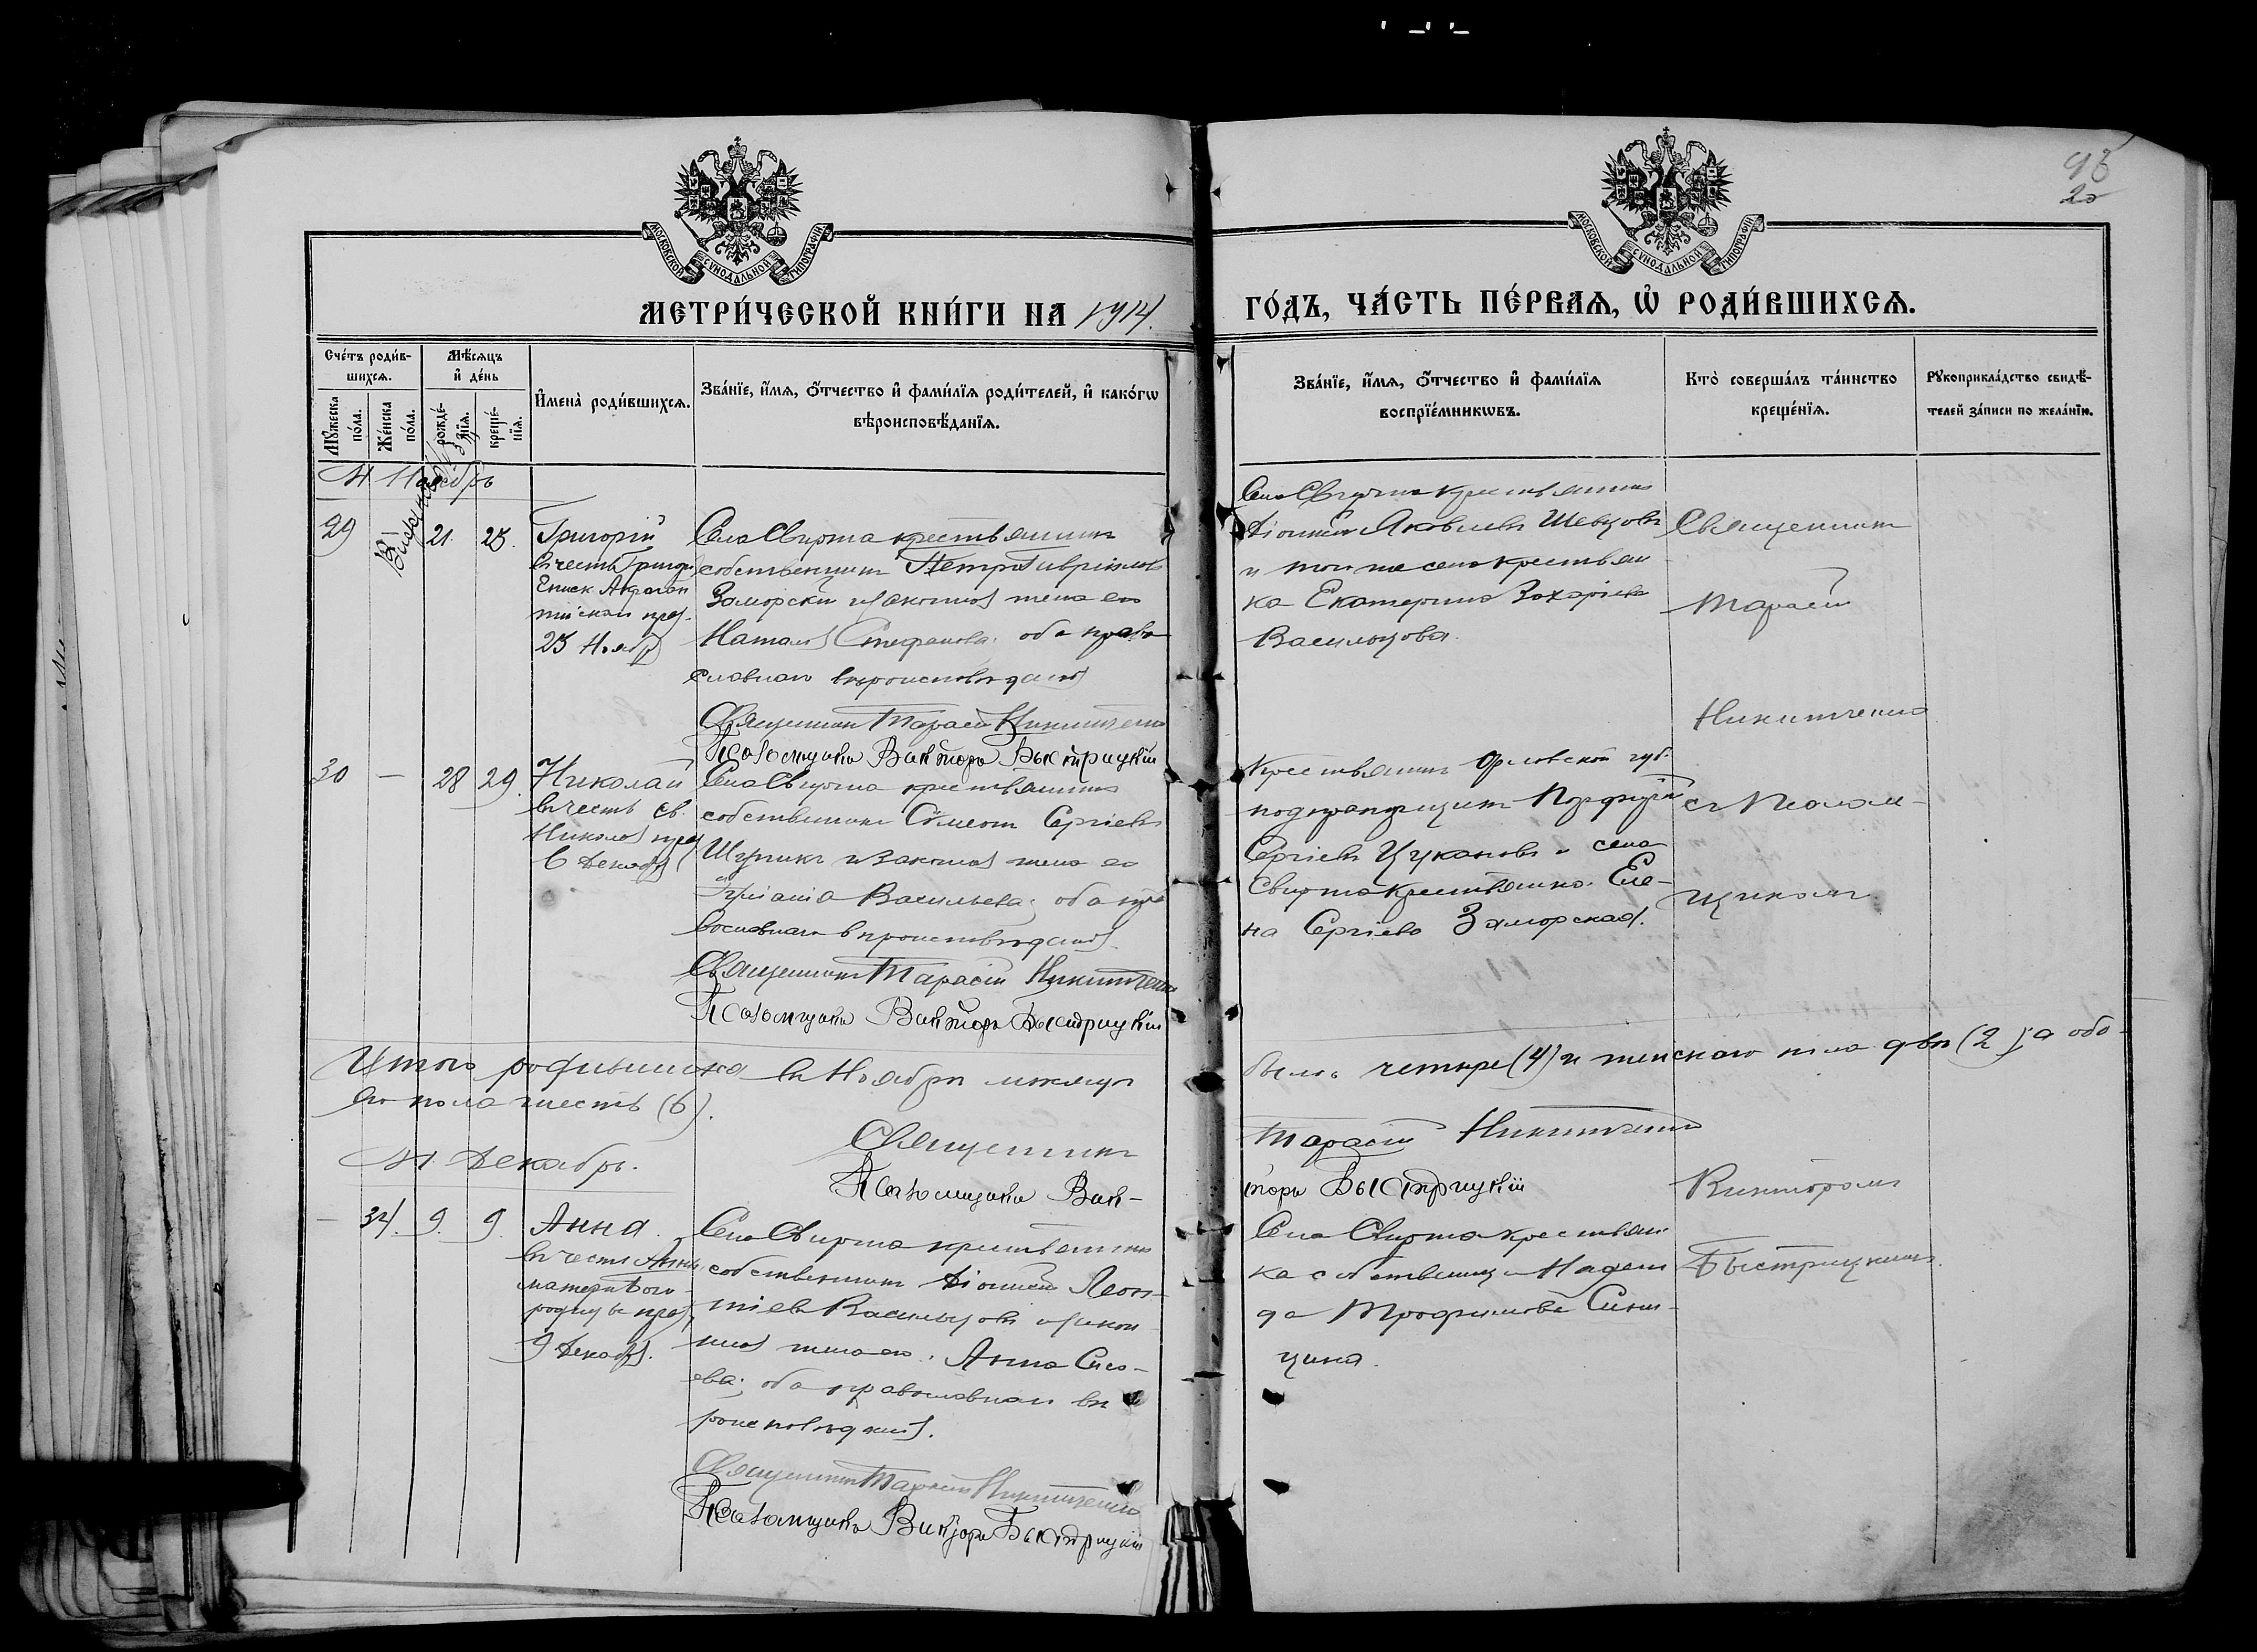 95
20
МОСКОВСКОЙ СУНОДАЛЬНОЙ ТИПОГРАФІИ
МОСКОВСКОЙ СУНОДАЛЬНОЙ ТИПОГРАФІИ
МЕТРИ́ЧЕСКОЙ КНИ́ГИ НА 1914.
ГО́ДЪ, ЧА́СТЬ ПЕ́РВАѦ, Ѡ҆ РОДИ́ВШИХСѦ.
Сче́тъ роди́в-
шихсѧ.
Мꙋ́жеска по́ла.
Же́нска по́ла.
Мѣ́сѧцъ
и҆ де́нь
рожде́-
нїѧ.
креще́-
нїѧ.
И҆мена̀ роди́вшихсѧ.
Зва́нїе, и҆́мѧ, ѻ҆́тчество и҆ фами́лїѧ роди́телей, и҆ како́гѡ
вѣроисповѣ́данїѧ.
Зва́нїе, и҆́мѧ, ѻ҆́тчество и҆ фами́лїѧ
воспрїе́мникѡвъ.
Кто̀ соверша́лъ та́инство
креще́нїѧ.
Рꙋкоприкла́дство свидѣ́-
телей за́писи по жела́нїю.
М. Ноябрь
29
21. 23.
Григорій
въ честь Григор
Еписк.
23 Нояб
Села Свирта крестьянинъ
собственникъ Петръ Гавріиловъ
Заморскій и законная жена его
Наталія Стефанова; оба право
славнаго вѣроисповѣданія
Священникъ Тарасій Никитченко
Псаломщикъ Викторъ Быстрицкій
Села Свирта крестьянинъ
Діонисій Яковлевъ Шевцовъ
и того же села крестьян
ка Екатерина Захаріева
Васильцова.
Священник
Тарасій
Никитченко
30 — 28 29.
Николай
въ честь св.
Николая пра
6 Декабря
Села Свирта крестьянинъ
собственникъ Сѵмеонъ Сергіевъ
и законная жена его
Васильева; оба пра
вославнаго вѣроисповѣданія.
Священникъ Тарасій Никитченко
Псаломщикъ Викторъ Быстрицкій
Крестьянинъ Орловской губ.
Порфирій
Сергіевъ Цукановъ и села
Свирта крестьянка Еле-
на Сергіева Заморская.
съ Псалом-
щикомъ
Итого родившихся въ Ноябрѣ мѣсяцѣ
было четыре (4) и женскаго пола двѣ (2), а обо-
его пола шесть (6).
Священникъ
Тарасій Никитченко
Псаломщикъ Вик-
торъ Быстрицкій
М. Декабрь.
— 34. 9. 9.
Анна.
въ честь Анны
матери Бого-
родицы праз
9 Декабря.
Села Свирта крестьянинъ
собственникъ Діонисій Леон-
тіевъ Васильцовъ и закон
ная жена его Анна Сисо-
ева; оба православнаго вѣ
роисповѣданія.
Священникъ Тарасій Никитченко
Псаломщикъ Викторъ Быстрицкій
Села Свирта крестьян
ка собственница Надеж
да Трофимова Сини-
цина.
Викторомъ
Быстрицкимъ.